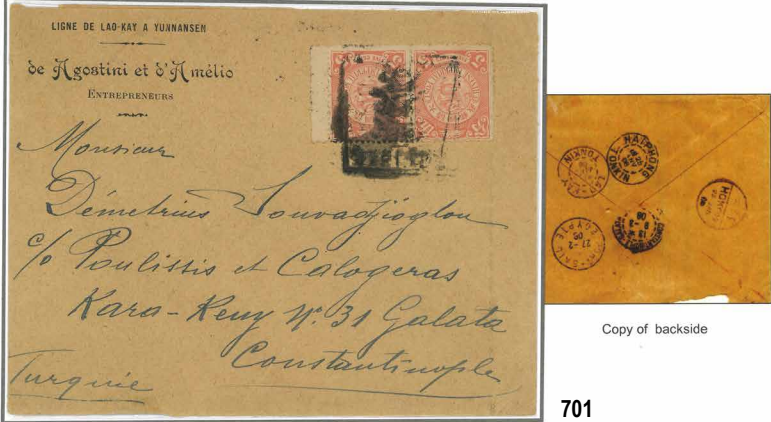 LIGNE DE LAO-KAY A YUNNANSEN
de Agostini et d'Amélio
ENTREPRENEURS
Monsieur
Démétrius Souvadjioglou
c/o Poulissis et Calogeras
Kara-Keuy N° 31 Galata
Constantinople
Turquie
HAIPHONG
TONKIN
LAO-KAY
TONKIN
HONGAY
PORT-SAID
27-2
06
EGYPTE
Copy of backside
701